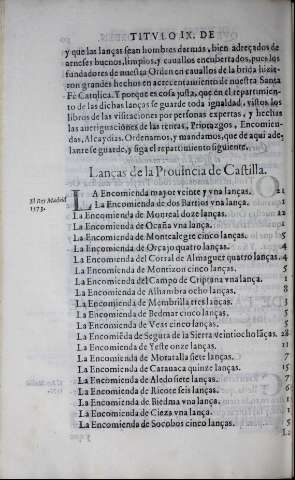 TITVLO IX. DE
y que las lanças sean hombres darmas, bien adreçados de
arneses buenos, limpios, y cauallos encubertados, pues los
fundadores de nuestra Orden en cauallos de la brida hizie
ron grandes hechos en acrecentamiento de nuestra Santa
Fè Catolica. Y porque es cosa justa, que en el repartimien-
to de las dichas lanças se guarde toda igualdad, vistos los
libros de las visitaciones por personas expertas, y hechas
las aueriguaciones de las rentas, Priorazgos, Encomien-
das, Alcaydias. Ordenamos, y mandamos, que de aqui ade-
lante se guarde, y siga el repartimiento siguiente.
Lanças de la Prouincia de Castilla.
El Rey Madrid
1573.
LA Encomienda mayor veinte y vna lanças. 21
La Encomienda de dos Barrios vna lança. 1
La Encomienda de Monreal doze lanças. 12
La Encomienda de Ocaña vna lança. 1
La Encomienda de Montealegre cinco lanças. 5
La Encomienda de Orcajo quatro lanças. 4
La Encomienda del Corral de Almaguer quatro lanças. 4
La Encomienda de Montizon cinco lanças. 5
La Encomienda del Campo de Criptana vna lança. 1
La Encomienda de Alhambra ocho lanças. 8
La Encomienda de Membrilla tres lanças. 3
La Encomienda de Bedmar cinco lanças. 5
La Encomienda de Veas cinco lanças. 5
La Encomiẽda de Segura de la Sierra veintiocho lãças. 28
La Encomienda de Yeste onze lanças. 11
La Encomienda de Moratalla siete lanças. 7
La Encomienda de Carauaca quinze lanças. 15
La Encomienda de Aledo siete lanças. 7
La Encomienda de Ricote seis lanças. 6
La Encomienda de Biedma vna lança. 1
La Encomienda de Cieza vna lança. 1
La Encomienda de Socobos cinco lanças. 5
La